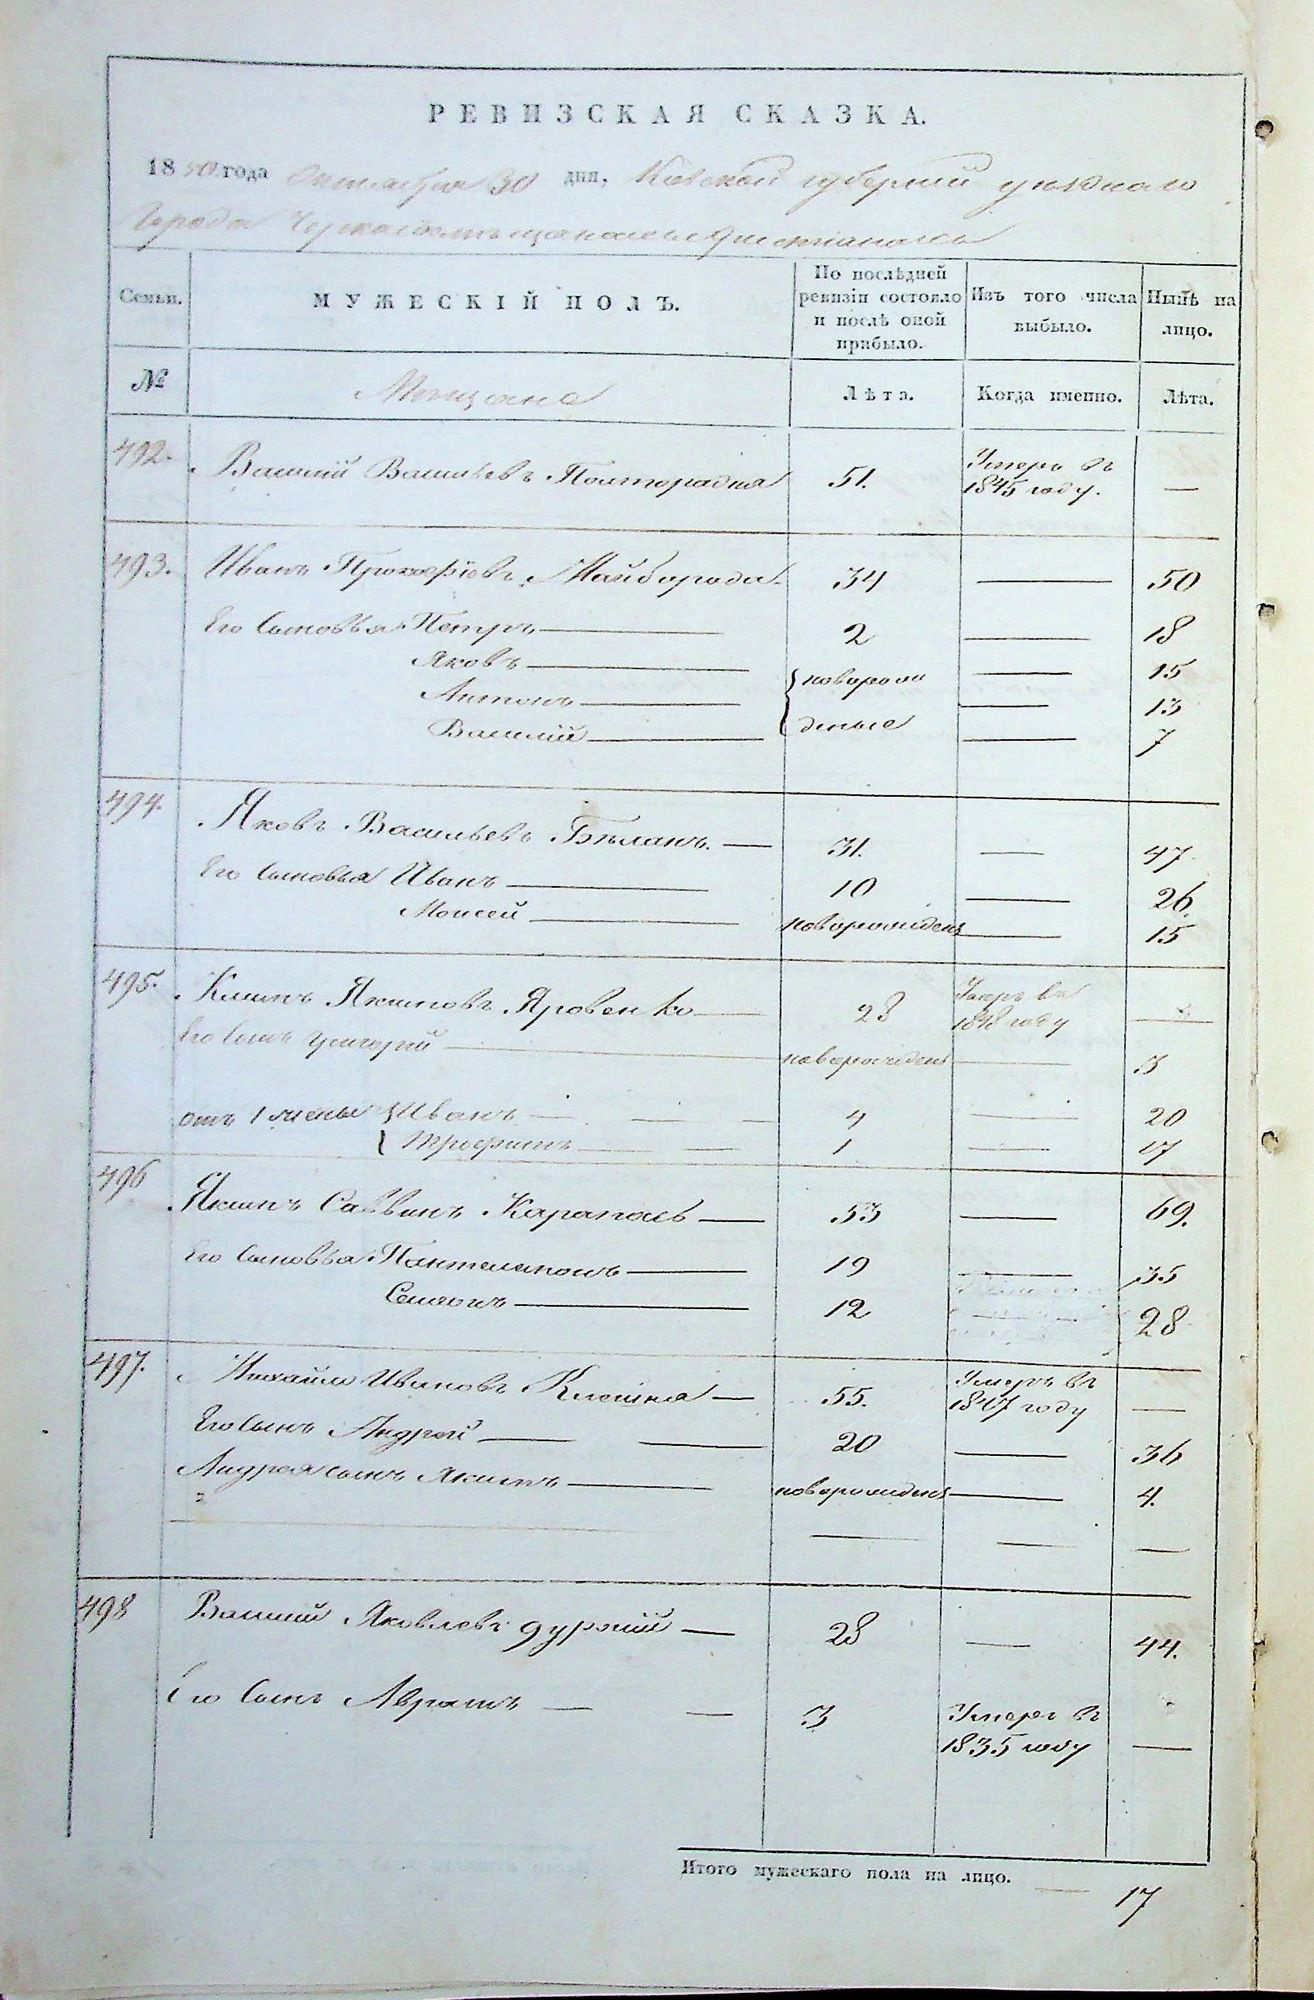 РЕВИЗСКАЯ СКАЗКА.
1850 года Октября 30 дня, Кіевской губерніи уезднаго
города Черкасъ о мѣщанахъ христіанахъ
Семьи. МУЖЕСКІЙ ПОЛЪ. По послѣдней ревизіи состояло и послѣ оной прибыло. Изъ того числа выбыло. Нынѣ на лицо.
№ Мѣщане Лѣта. Когда именно. Лѣта.
492. Василий Васильевъ 51. Умеръ въ 1845 году. —
493. Иванъ Прокофіевъ Майборода 34 — 50
Его сыновья Петръ — 2 — 18
Яковъ — новорож — 15
Антонъ — — 13
Василій — денные — 7
494. Яковъ Васильевъ Бѣланъ. — 31. — 47
Его сыновья Иванъ — 10 — 26.
Моисей — новорожденъ — 15
495. Климъ Якимовъ Яровенко — 28 Умеръ въ 1848 году —
Его сынъ Григорій — новорожденъ — 3
отъ 1 жены Иванъ — — 4 — 20
Трофимъ — — 1 — 17
496 Якимъ Саввинъ — 53 — 69.
Его сыновья Пантелемонъ — 19 — 35
Семенъ — 12 28
497. Михайло Ивановъ Клешня — 55. Умеръ въ 1847 году —
Его сынъ Андрей — — 20 — 36
Андрея сынъ Якимъ — новорожденъ — 4.
— — —
498 Василий Яковлевъ — 28 — 44.
Его сынъ Аврамъ — — 3 Умеръ въ 1835 году —
Итого мужескаго пола на лицо. — 17